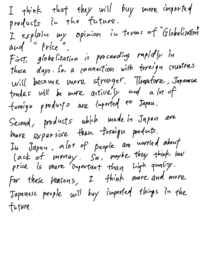 I think that they will buy more imported
products in the future.
I explain my opinion in terms of "Globalization"
and "Price".
First, globalization is proceeding rapidly in
these days. So a connection with foreign countries
will become more stronger. Therefore, Japanese
trades will be more actively and a lot of
foreign products are imported to Japan.
Second, products which made in Japan are
more expensive than foreign products.
In Japan, a lot of people are worried about
lack of money. So, maybe they think low
price is more important than high quality.
For these reasons, I think more and more
Japanese people will buy imported things in the
future.